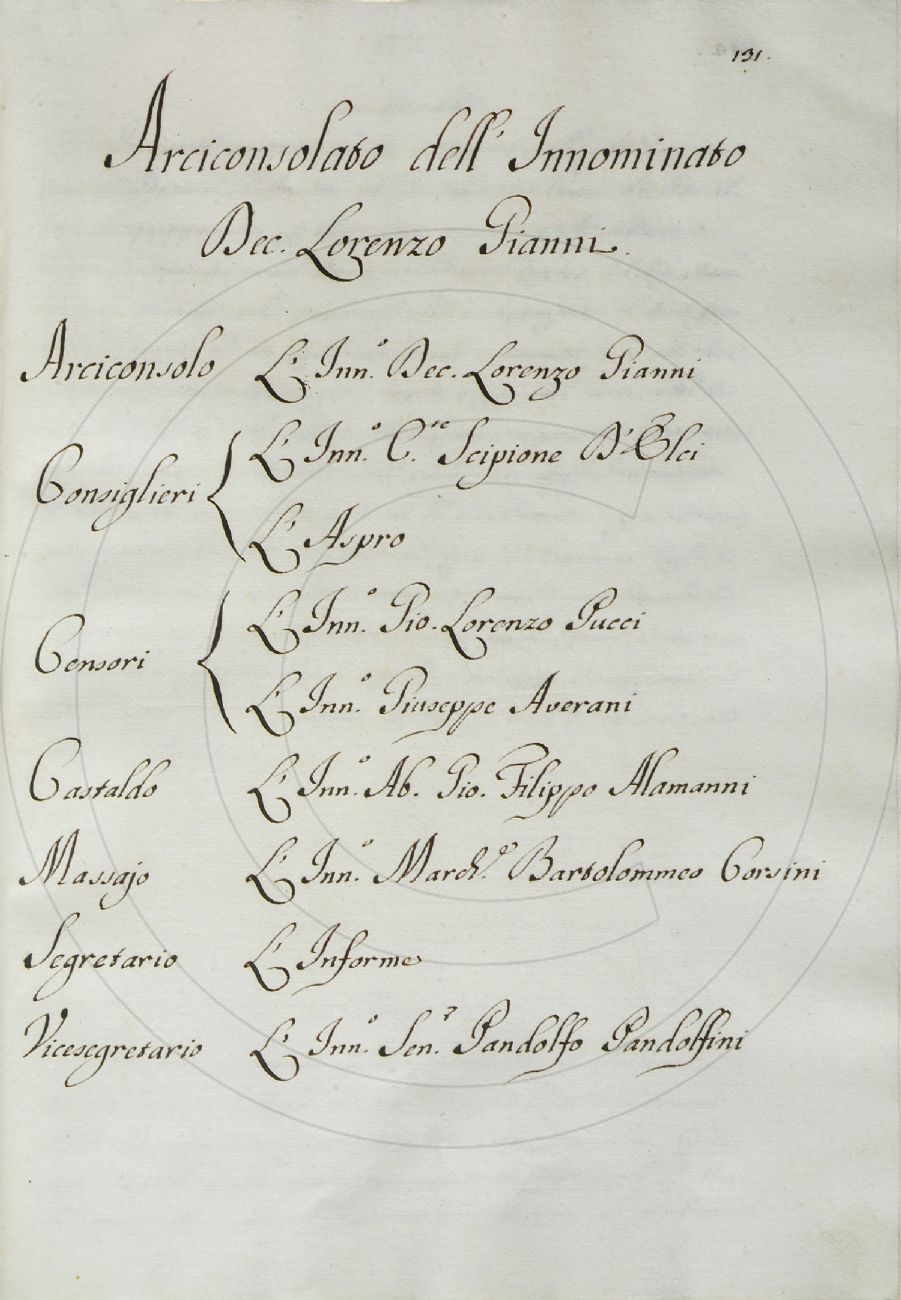 131.
Arciconsolato dell' Innominato
Dec. Lorenzo Gianni.
Arciconsolo L' Inn.o Dec. Lorenzo Gianni
Consiglieri { L' Inn.o C.re Scipione D'Elci
L' Aspro
Censori { L' Inn.o Gio. Lorenzo Pucci
L' Inn.o Giuseppe Averani
Castaldo L' Inn.o Ab. Gio. Filippo Alamanni
Massajo L' Inn.o March.e Bartolommeo Corsini
Segretario L' Informe
Vicesegretario L' Inn.o Sen.r Pandolfo Pandolfini